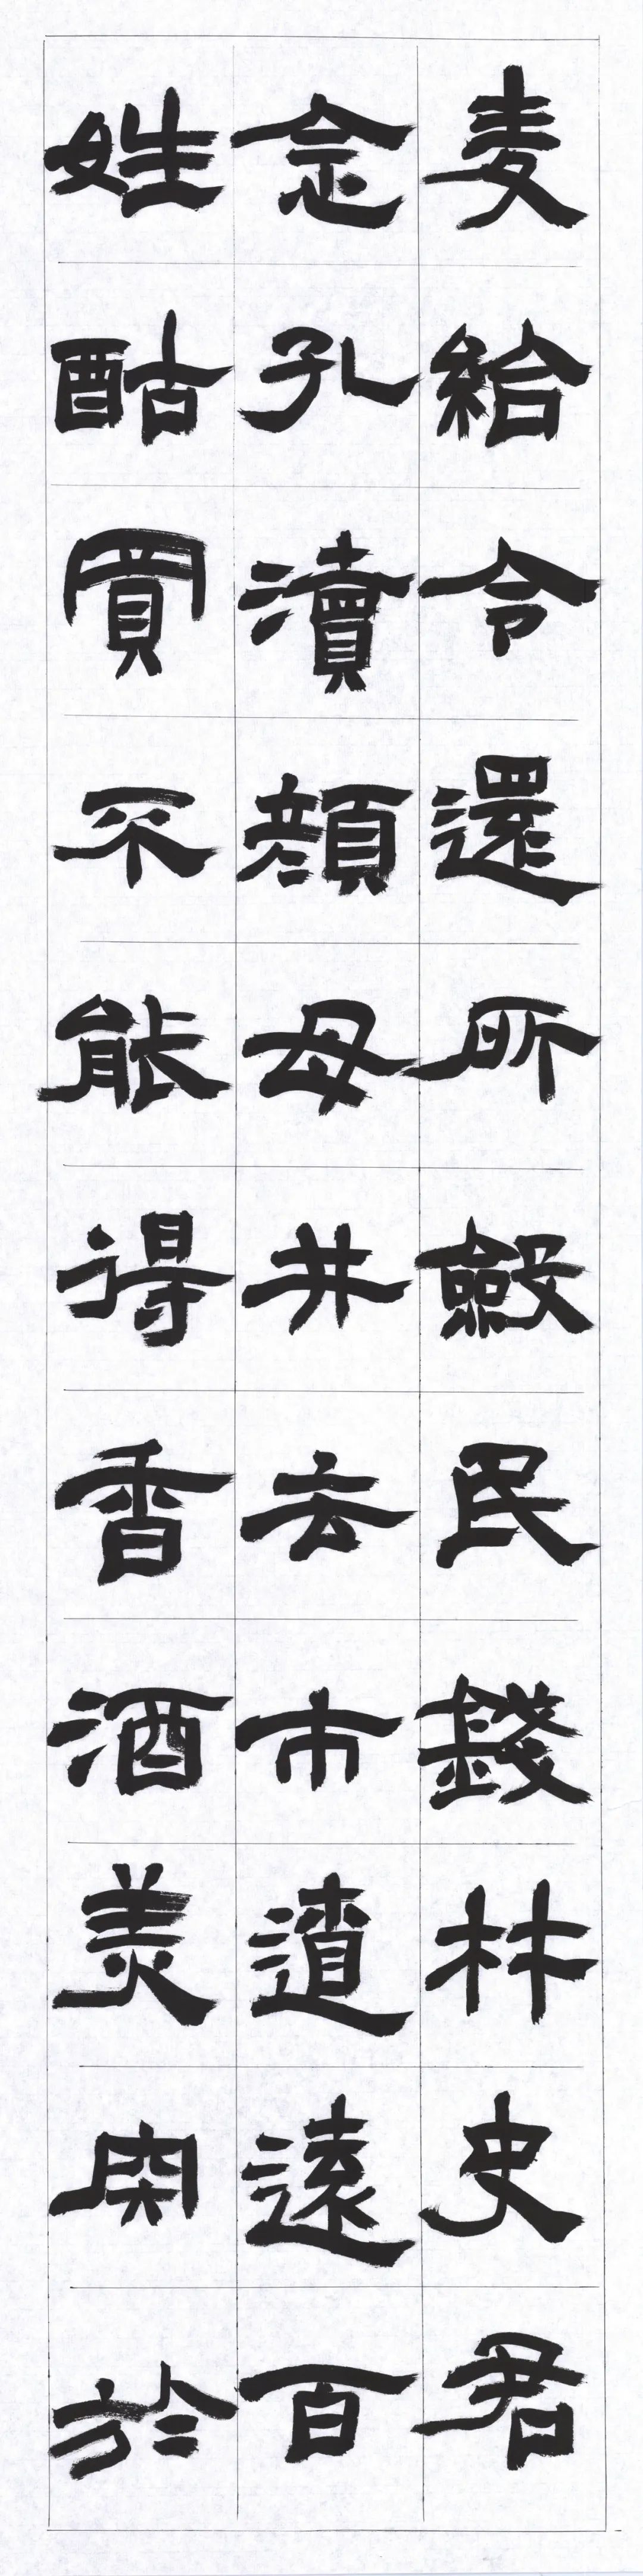 麦給令還所斂民錢林史君
念孔瀆顏母井去市道遠百
姓酤買不能得香酒美肉於